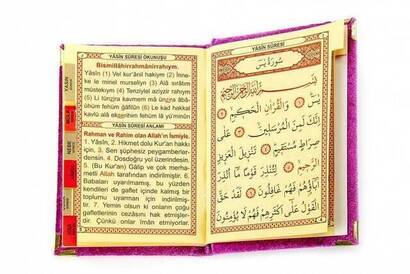 YÂSÎN SÛRESİ OKUNUŞU
Bismillâhirrahmânirrahıym.
Yâsîn (1) Vel kur'ânil hakiym (2) İnne-
ke le minel murseliyn (3) Alâ sırâtın
müstekıym (4) Tenziylel aziyzir rahıym
(5) Li tünzira kavmem mâ ünzira âbâ-
ühüm fehüm ğâfilûn (6) Le kad hakkal
kavlü alâ ekserihim fehüm lâ yü'minûn
YÂSÎN SÛRESİ ANLAMI
Rahman ve Rahim olan Allah'ın İsmiyle.
1. Yâsîn, 2. Hikmet dolu Kur'an hakkı
için, 3. Sen şüphesiz peygamberler-
densin. 4. Dosdoğru yol üzerindesin.
5. (Bu Kur'an) Gâlip ve çok merha-
metli Allah tarafından indirilmiştir. 6.
Babaları uyarılmamış, bu yüzden
kendileri de gaflet içinde kalmış bir
toplumu uyarman için indirilmiştir.
7. Yemin olsun ki onların çoğu
gafletlerinin cezasını hak etmişler-
dir. Çünkü onlar îman etmiyorlar.
YASİN
MÜLK
NEBE
YÂSÎN SÛRESİ
سُورَةُ يٰسٓ
بِسْمِ اللّٰهِ الرَّحْمٰنِ الرَّحِيمِ
يٰسٓ ﴿١﴾ وَالْقُرْاٰنِ الْحَكِيمِ ﴿٢﴾
اِنَّكَ لَمِنَ الْمُرْسَلِينَ ﴿٣﴾ عَلٰى
صِرَاطٍ مُسْتَقِيمٍ ﴿٤﴾ تَنْزِيلَ الْعَزِيزِ
الرَّحِيمِ ﴿٥﴾ لِتُنْذِرَ قَوْمًا مَٓا اُنْذِرَ
اٰبَٓاؤُهُمْ فَهُمْ غَافِلُونَ ﴿٦﴾ لَقَدْ حَقَّ
الْقَوْلُ عَلٰٓى اَكْثَرِهِمْ فَهُمْ لَا يُؤْمِنُونَ